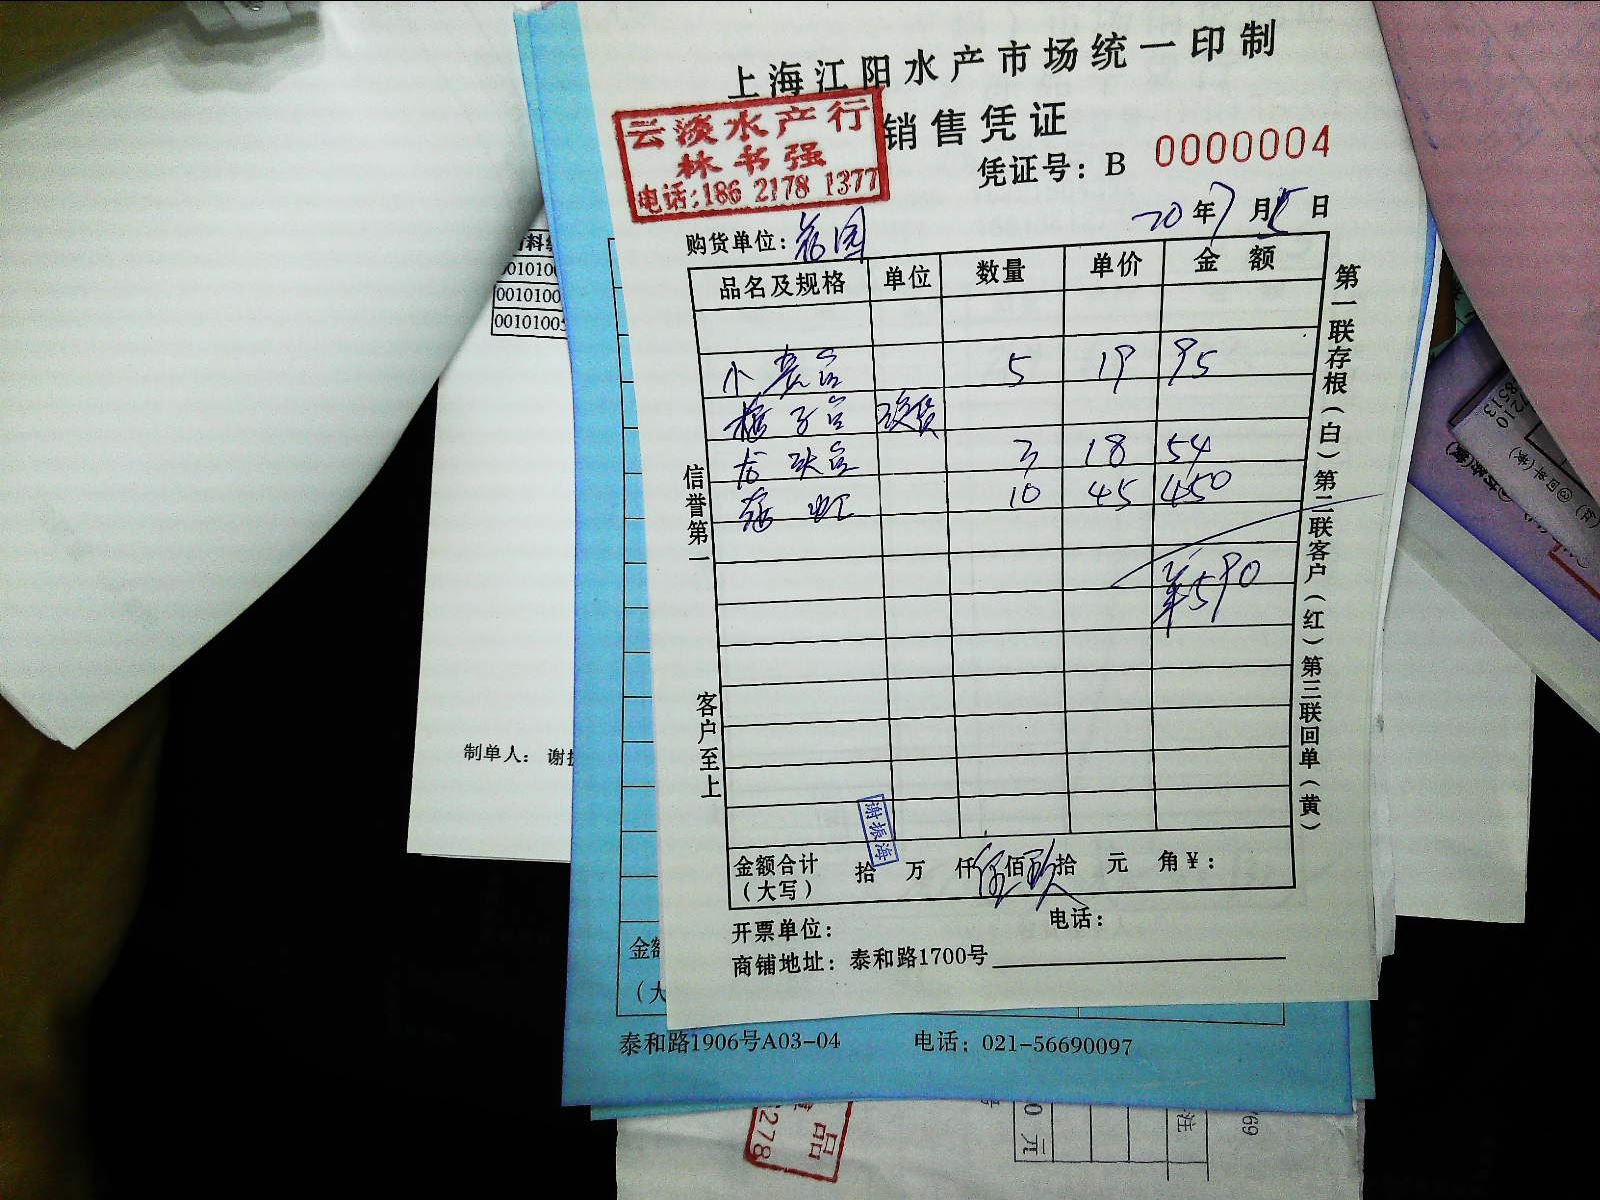 上海江阳水产市场统一印制
销售凭证
云淡水产行
林书强
电话:186 2178 1377
凭证号: B 0000004
20年7月5日
购货单位:
品名及规格 单位 数量 单价 金额
小 5 19 95
没货
3 18 54
10 45 450
¥590
金额合计 拾 万 仟 伍佰玖拾 元 角¥:
(大写)
谢振海
开票单位: 电话:
商铺地址: 泰和路1700号
信誉第一
客户至上
第一联存根(白)第二联客户(红)第三联回单(黄)
0010100
0010100
0010100
制单人: 谢
泰和路1906号A03-04 电话: 021-56690097
品
278
0元
注
69